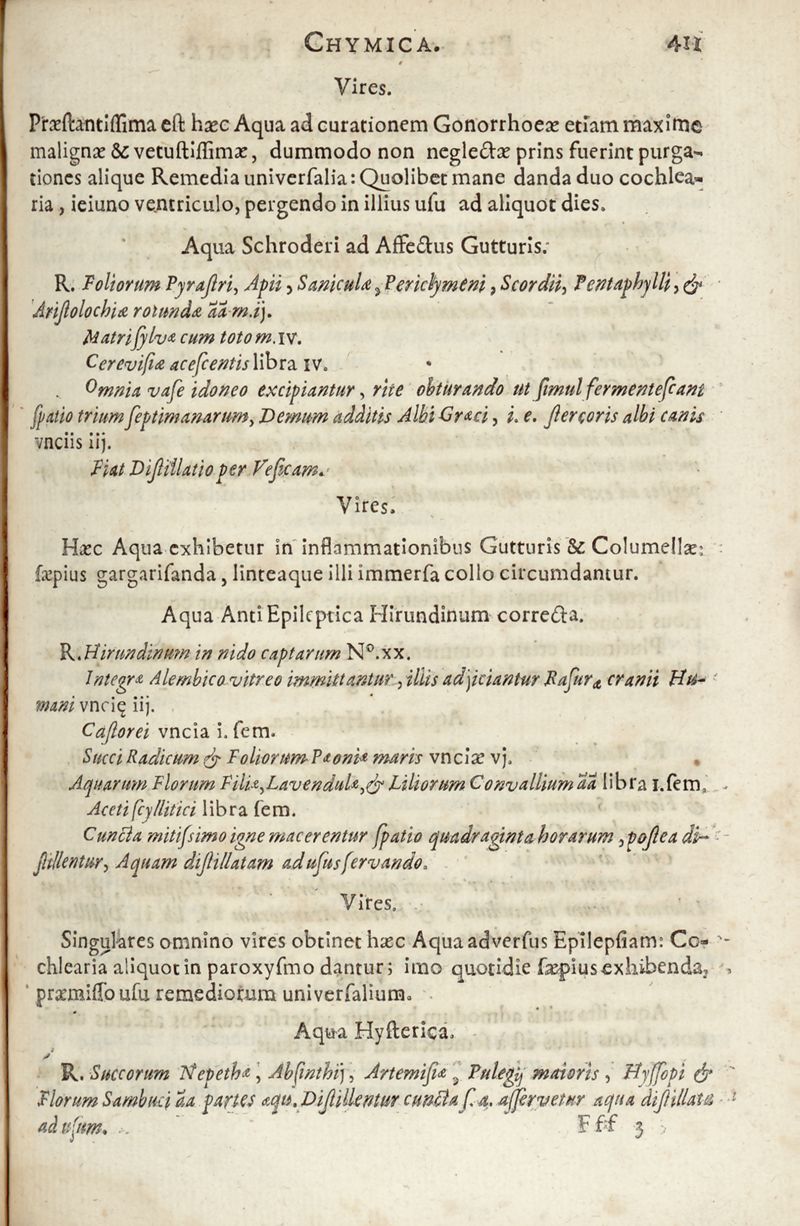 CHYMICA. 411
Vires.
Præſtantiſſima eſt hæc Aqua ad curationem Gonorrhoeæ etiam maxime
malignæ & vetuſtiſſimæ, dummodo non neglectæ prins fuerint purga-
tiones alique Remedia univerſalia: Quolibet mane danda duo cochlea-
ria, ieiuno ventriculo, pergendo in illius uſu ad aliquot dies.
Aqua Schroderi ad Affectus Gutturis.
R. Foliorum Pyraſtri, Apii, Saniculæ, Periclymeni, Scordii, Pentaphylli, &
Ariſtolochiæ rotundæ aā m.ij.
Matriſylvæ cum toto m.IV.
Cereviſiæ aceſcentis libra IV.
Omnia vaſe idoneo excipiantur, rite obturando ut ſimul fermenteſcant
ſpatio trium ſeptimanarum, Demum additis Albi Græci, i. e. ſtercoris albi canis
vnciis iij.
Fiat Diſtillatio per Veſicam.
Vires.
Hæc Aqua exhibetur in inflammationibus Gutturis & Columellæ;
ſæpius gargariſanda, linteaque illi immerſa collo circumdantur.
Aqua Anti Epileptica Hirundinum correcta.
R. Hirundinum in nido captarum N°.xx.
Integræ Alembico vitreo immittantur, illis adjiciantur Raſuræ cranii Hu-
mani vncię iij.
Caſtorei vncia i. ſem.
Succi Radicum & Foliorum Pæoniæ maris vnciæ vj.
Aquarum Florum Filiæ, Lavendulæ, & Liliorum Convallium aā libra I. ſem.
Aceti ſcyllitici libra ſem.
Cuncta mitiſsimo igne macerentur ſpatio quadraginta horarum, poſtea di-
ſtillentur, Aquam diſtillatam ad uſus ſervando.
Vires.
Singulares omnino vires obtinet hæc Aqua adverſus Epilepſiam: Co-
chlearia aliquot in paroxyſmo dantur; imo quotidie ſæpius exhibenda,
præmiſſo uſu remediorum univerſalium.
Aqua Hyſterica.
R. Succorum Nepethæ, Abſinthij, Artemiſiæ, Pulegij maioris, Hyſſopi &
Florum Sambuci aā partes æqu. Diſtillentur cuncta ſ. a. aſſervetur aqua diſtillata
ad uſum.
Fff 3